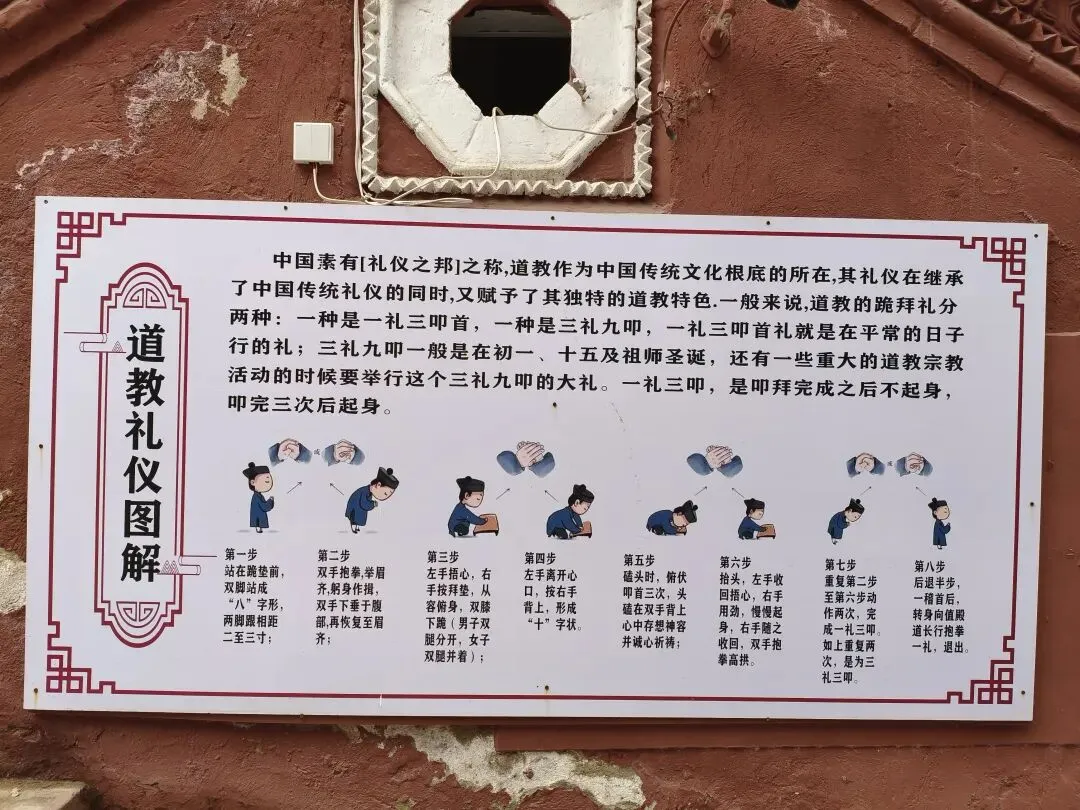 道教礼仪图解
中国素有[礼仪之邦]之称,道教作为中国传统文化根底的所在,其礼仪在继承
了中国传统礼仪的同时,又赋予了其独特的道教特色.一般来说,道教的跪拜礼分
两种：一种是一礼三叩首，一种是三礼九叩，一礼三叩首礼就是在平常的日子
行的礼；三礼九叩一般是在初一、十五及祖师圣诞，还有一些重大的道教宗教
活动的时候要举行这个三礼九叩的大礼。一礼三叩，是叩拜完成之后不起身，
叩完三次后起身。
或
或
第一步
站在跪垫前，
双脚站成
“八”字形，
两脚跟相距
二至三寸；
第二步
双手抱拳,举眉
齐,躬身作揖，
双手下垂于腹
部,再恢复至眉
齐；
第三步
左手捂心，右
手按拜垫，从
容俯身，双膝
下跪（男子双
腿分开，女子
双腿并着）；
第四步
左手离开心
口，按右手
背上，形成
“十”字状。
第五步
磕头时，俯伏
叩首三次，头
磕在双手背上
心中存想神容
并诚心祈祷；
第六步
抬头，左手收
回捂心，右手
用劲，慢慢起
身，右手随之
收回，双手抱
拳高拱。
第七步
重复第二步
至第六步动
作两次，完
成一礼三叩。
如上重复两
次，是为三
礼三叩。
第八步
后退半步，
一稽首后，
转身向值殿
道长行抱拳
一礼，退出。